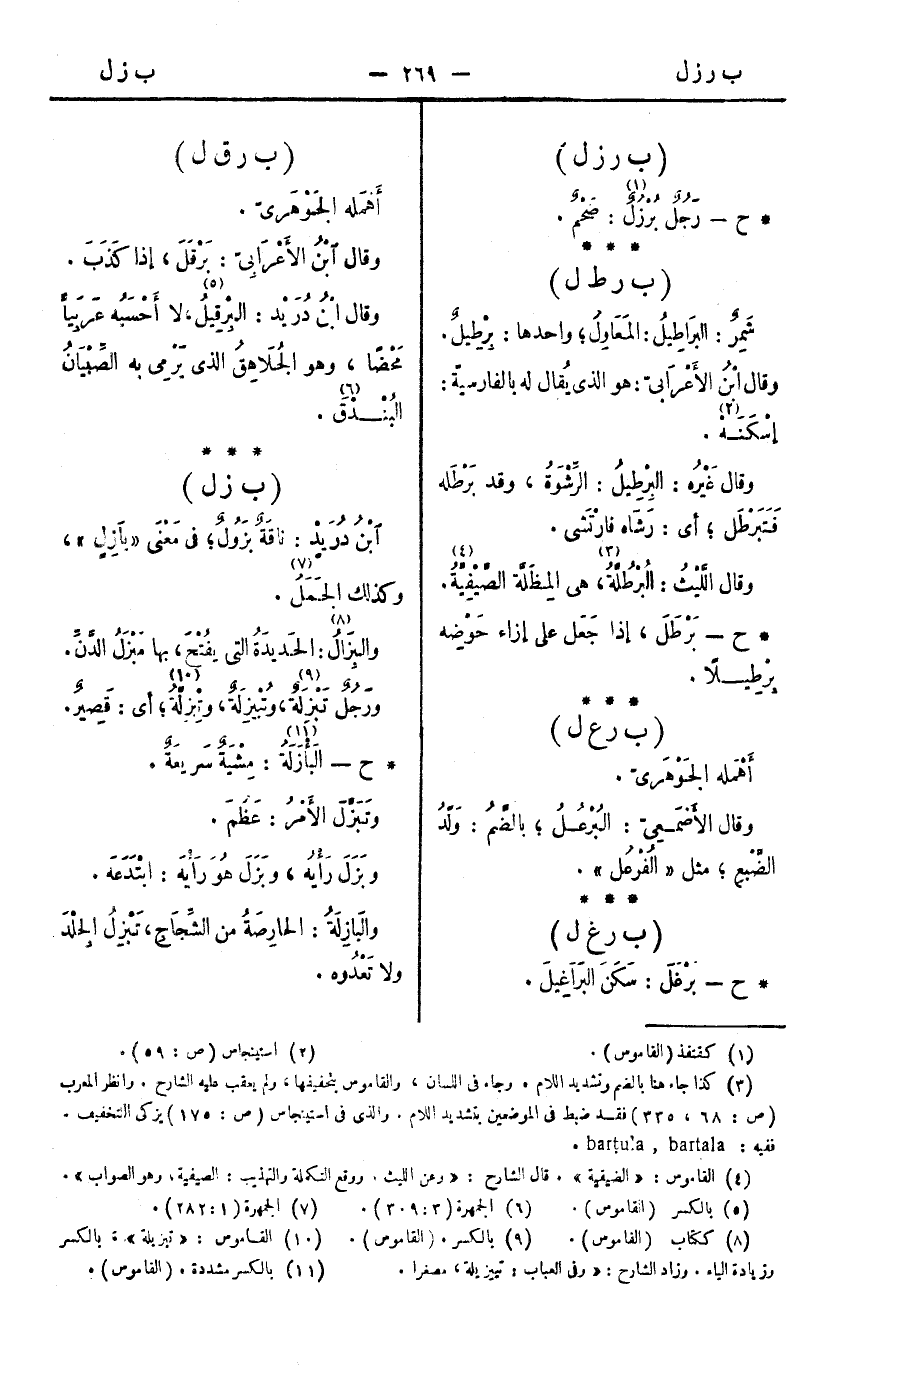 ب رزل — ٢٦٩ — ب زل
( ب رزل )
* ح – رَجُلٌ بُرْزُلٌ (١) : ضَخْمٌ .
* * *
( ب رط ل )
شَمِرٌ : البَرَاطِيلُ : المَعَاوِلُ ؛ واحدها : بِرْطِيلٌ .
وقال ابْنُ الأَعْرَابىّ : هو الذى يُقال له بالفارسيّة :
إسْكَنَهْ (٢) .
وقال غَيْرُه : البِرْطِيلُ : الرِّشْوَةُ ، وقد بَرْطَله
فَتَبَرْطَل ؛ أى : رَشَاه فارْتَشَى .
وقال اللَّيْثُ : البُرْطُلَّةُ (٣) ، هى المِظَلّة الصَّيْفِيَّةُ (٤) .
* ح – بَرْطَلَ ، إذا جَعَل على إزاء حَوْضِه
بِرْطِيــلًا .
* * *
( ب رع ل )
أَهْمَله الجَوْهَرىّ .
وقال الأَصْمَــعِىّ : البُرْعُــلُ ؛ بالضَّم : وَلَدُ
الضَّبْعِ ؛ مثل « الفُرْعُل » .
* * *
( ب رغ ل )
* ح – بَرْغَلَ : سَكَنَ البَرَاغِيلَ .
( ب رق ل )
أَهْمَله الجَوْهَرىّ .
وقال ابْنُ الأَعْرَابىّ : بَرْقَلَ ، إذا كَذَبَ .
وقال ابْنُ دُرَيْد : البِرْقِيلُ (٥) ، لا أَحْسَبُه عَرَبِيًّا
مَحْضًا ، وهو الجُلَاهِقُ الذى يَرْمِى به الصِّبْيَانُ
البُنْــدُقَ (٦) .
* * *
( ب زل )
ابْنُ دُرَيْدٍ : ناقَةٌ بَزُولٌ ؛ فى مَعْنَى « بَازِلٍ » ،
وكذلك الجَمَلُ (٧) .
والبِزَالُ (٨) : الحَديدَةُ التى يُفْتَحُ ، بها مَبْزَلُ الدَّنِّ .
ورَجُلٌ تَبْزِلَةٌ (٩) ، وتُبَيْزِلَةٌ ، وتِبْزِلَّةٌ (١٠) ؛ أى : قَصِيرٌ .
* ح – البَأْزَلَةُ (١١) : مِشْيَةٌ سَرِيعَةٌ .
وتَبَزَّلَ الأَمْرُ : عَظُمَ .
وبَزَلَ رَأْيُه ، وبَزَلَ هُوَ رَأْيَه : ابْتَدَعَه .
والبَازِلَةُ : الحارِصَةُ من الشِّجَاجِ ، تَبْزِلُ الجِلْدَ
ولا تَعْدُوه .
(١) كقنفذ (القاموس) . (٢) استينجاس (ص : ٥٩) .
(٣) كذا جاء هنا بالضم وتشديد اللام . وجاء فى اللسان ، والقاموس بتخفيفها ، ولم يعقب عليه الشارح . وانظر المعرب
(ص : ٦٨ ، ٣٣٥) فقــد ضبط فى الموضعين بتشديد اللام . والذى فى استينجاس (ص : ١٧٥) يزكى التخفيف .
ففيه : barṭula , bartala .
(٤) القاموس : « الضيقية » . قال الشارح : « وعن الليث . ووقع التكملة والتهذيب : الصيفية ، وهو الصواب » .
(٥) بالكسر (القاموس) . (٦) الجمهرة (٣ : ٣٠٩) . (٧) الجمهرة (١ : ٢٨٢) .
(٨) ككتاب (القاموس) . (٩) بالكسر . (القاموس) . (١٠) القــاموس : « تبزيلة » ، بالكسر
وزيادة الياء . وزاد الشارح : « وفى العباب : تبيزيلة ، مصغرا . (١١) بالكسر مشددة . (القاموس) .